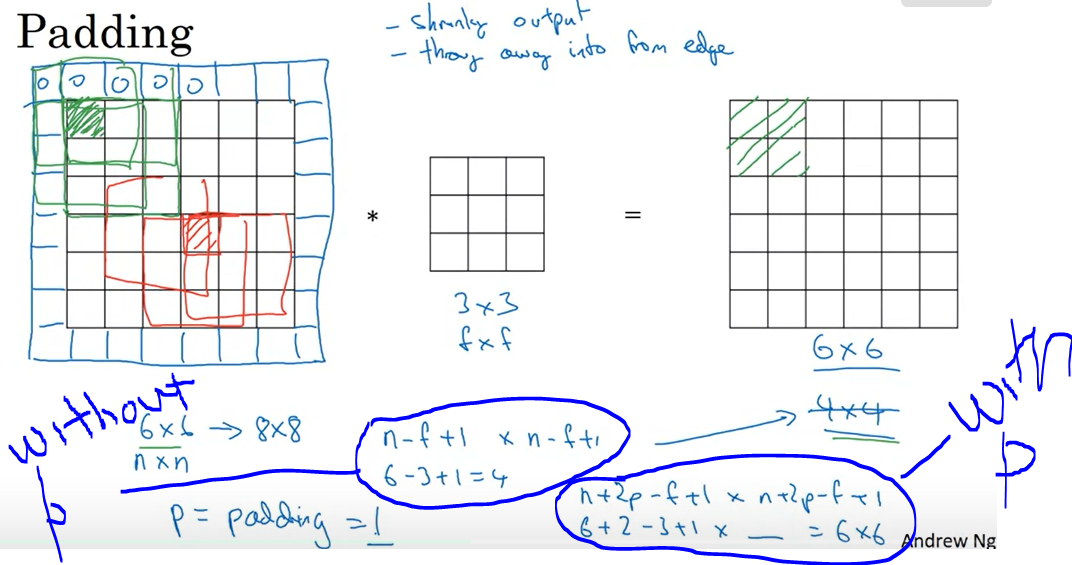 Padding
- shrinky output
- throw away info from edge
0 0 0 0 0
*
=
3×3
f×f
6×6
without
p
6×6 → 8×8
n×n
n-f+1 × n-f+1
6-3+1=4
4×4
with
p
p = padding = 1
n+2p-f+1 × n+2p-f+1
6+2-3+1 × __ = 6×6
Andrew Ng